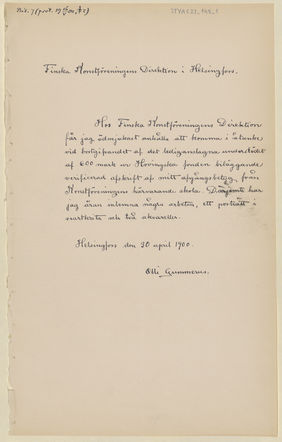 Finska Konstföreningens Direktion i Helsingfors.
Hos Finska Konstföreningens Direktion
får jag ödmjukast anhålla att komma i åtanke
vid bortgifvandet af det lediganslagna understödet
af 600 mark ur Hovingska fonden biläggande
verifierad afskrift af mitt afgångsbetyg från
Konstföreningens härvarande skola. Därjämte har
jag äran inlemna några arbeten, ett porträtt i
svartkrita och två akvareller.
Helsingfors den 30 april 1900.
Olli Gummerus.